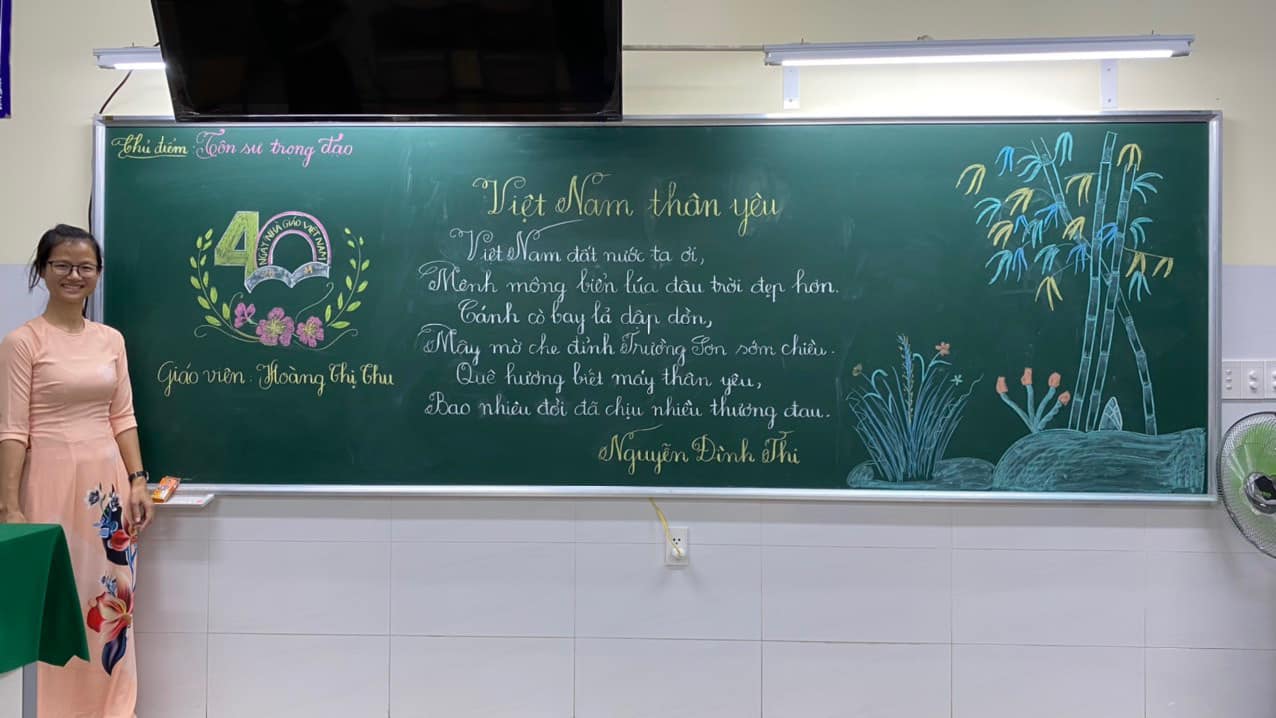 Chủ điểm: Tôn sư trọng đạo
40
NGÀY NHÀ GIÁO VIỆT NAM
Giáo viên: Hoàng Thị Thu
Việt Nam thân yêu
Việt Nam đất nước ta ơi,
Mênh mông biển lúa đâu trời đẹp hơn.
Cánh cò bay lả dập dờn,
Mây mờ che đỉnh Trường Sơn sớm chiều.
Quê hương biết mấy thân yêu,
Bao nhiêu đời đã chịu nhiều thương đau.
Nguyễn Đình Thi